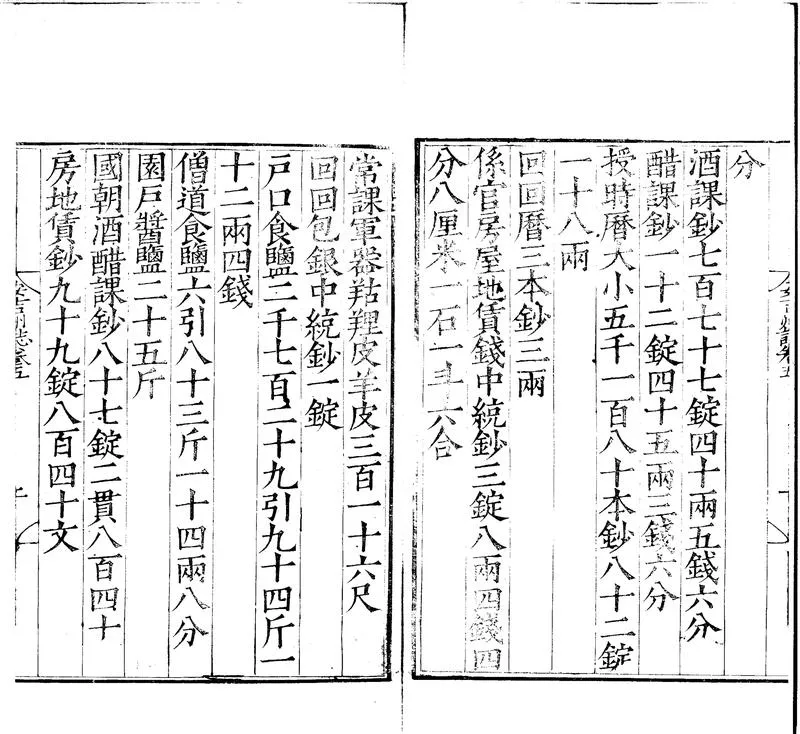 分
酒課鈔七百七十七錠四十兩五錢六分
醋課鈔一十二錠四十五兩三錢六分
授時曆大小五千一百八十本鈔八十二錠
一十八兩
回回曆三本鈔三兩
係官房屋地賃錢中統鈔三錠八兩四錢四
分八厘米一石一斗六合
常課軍器羖䍽皮羊皮三百一十六尺
回回包銀中統鈔一錠
戸口食鹽二千七百二十九引九十四斤一
十二兩四錢
僧道食鹽六引八十三斤一十四兩八分
園戸醬鹽二十五斤
國朝酒醋課鈔八十七錠二貫八百四十
房地賃鈔九十九錠八百四十文